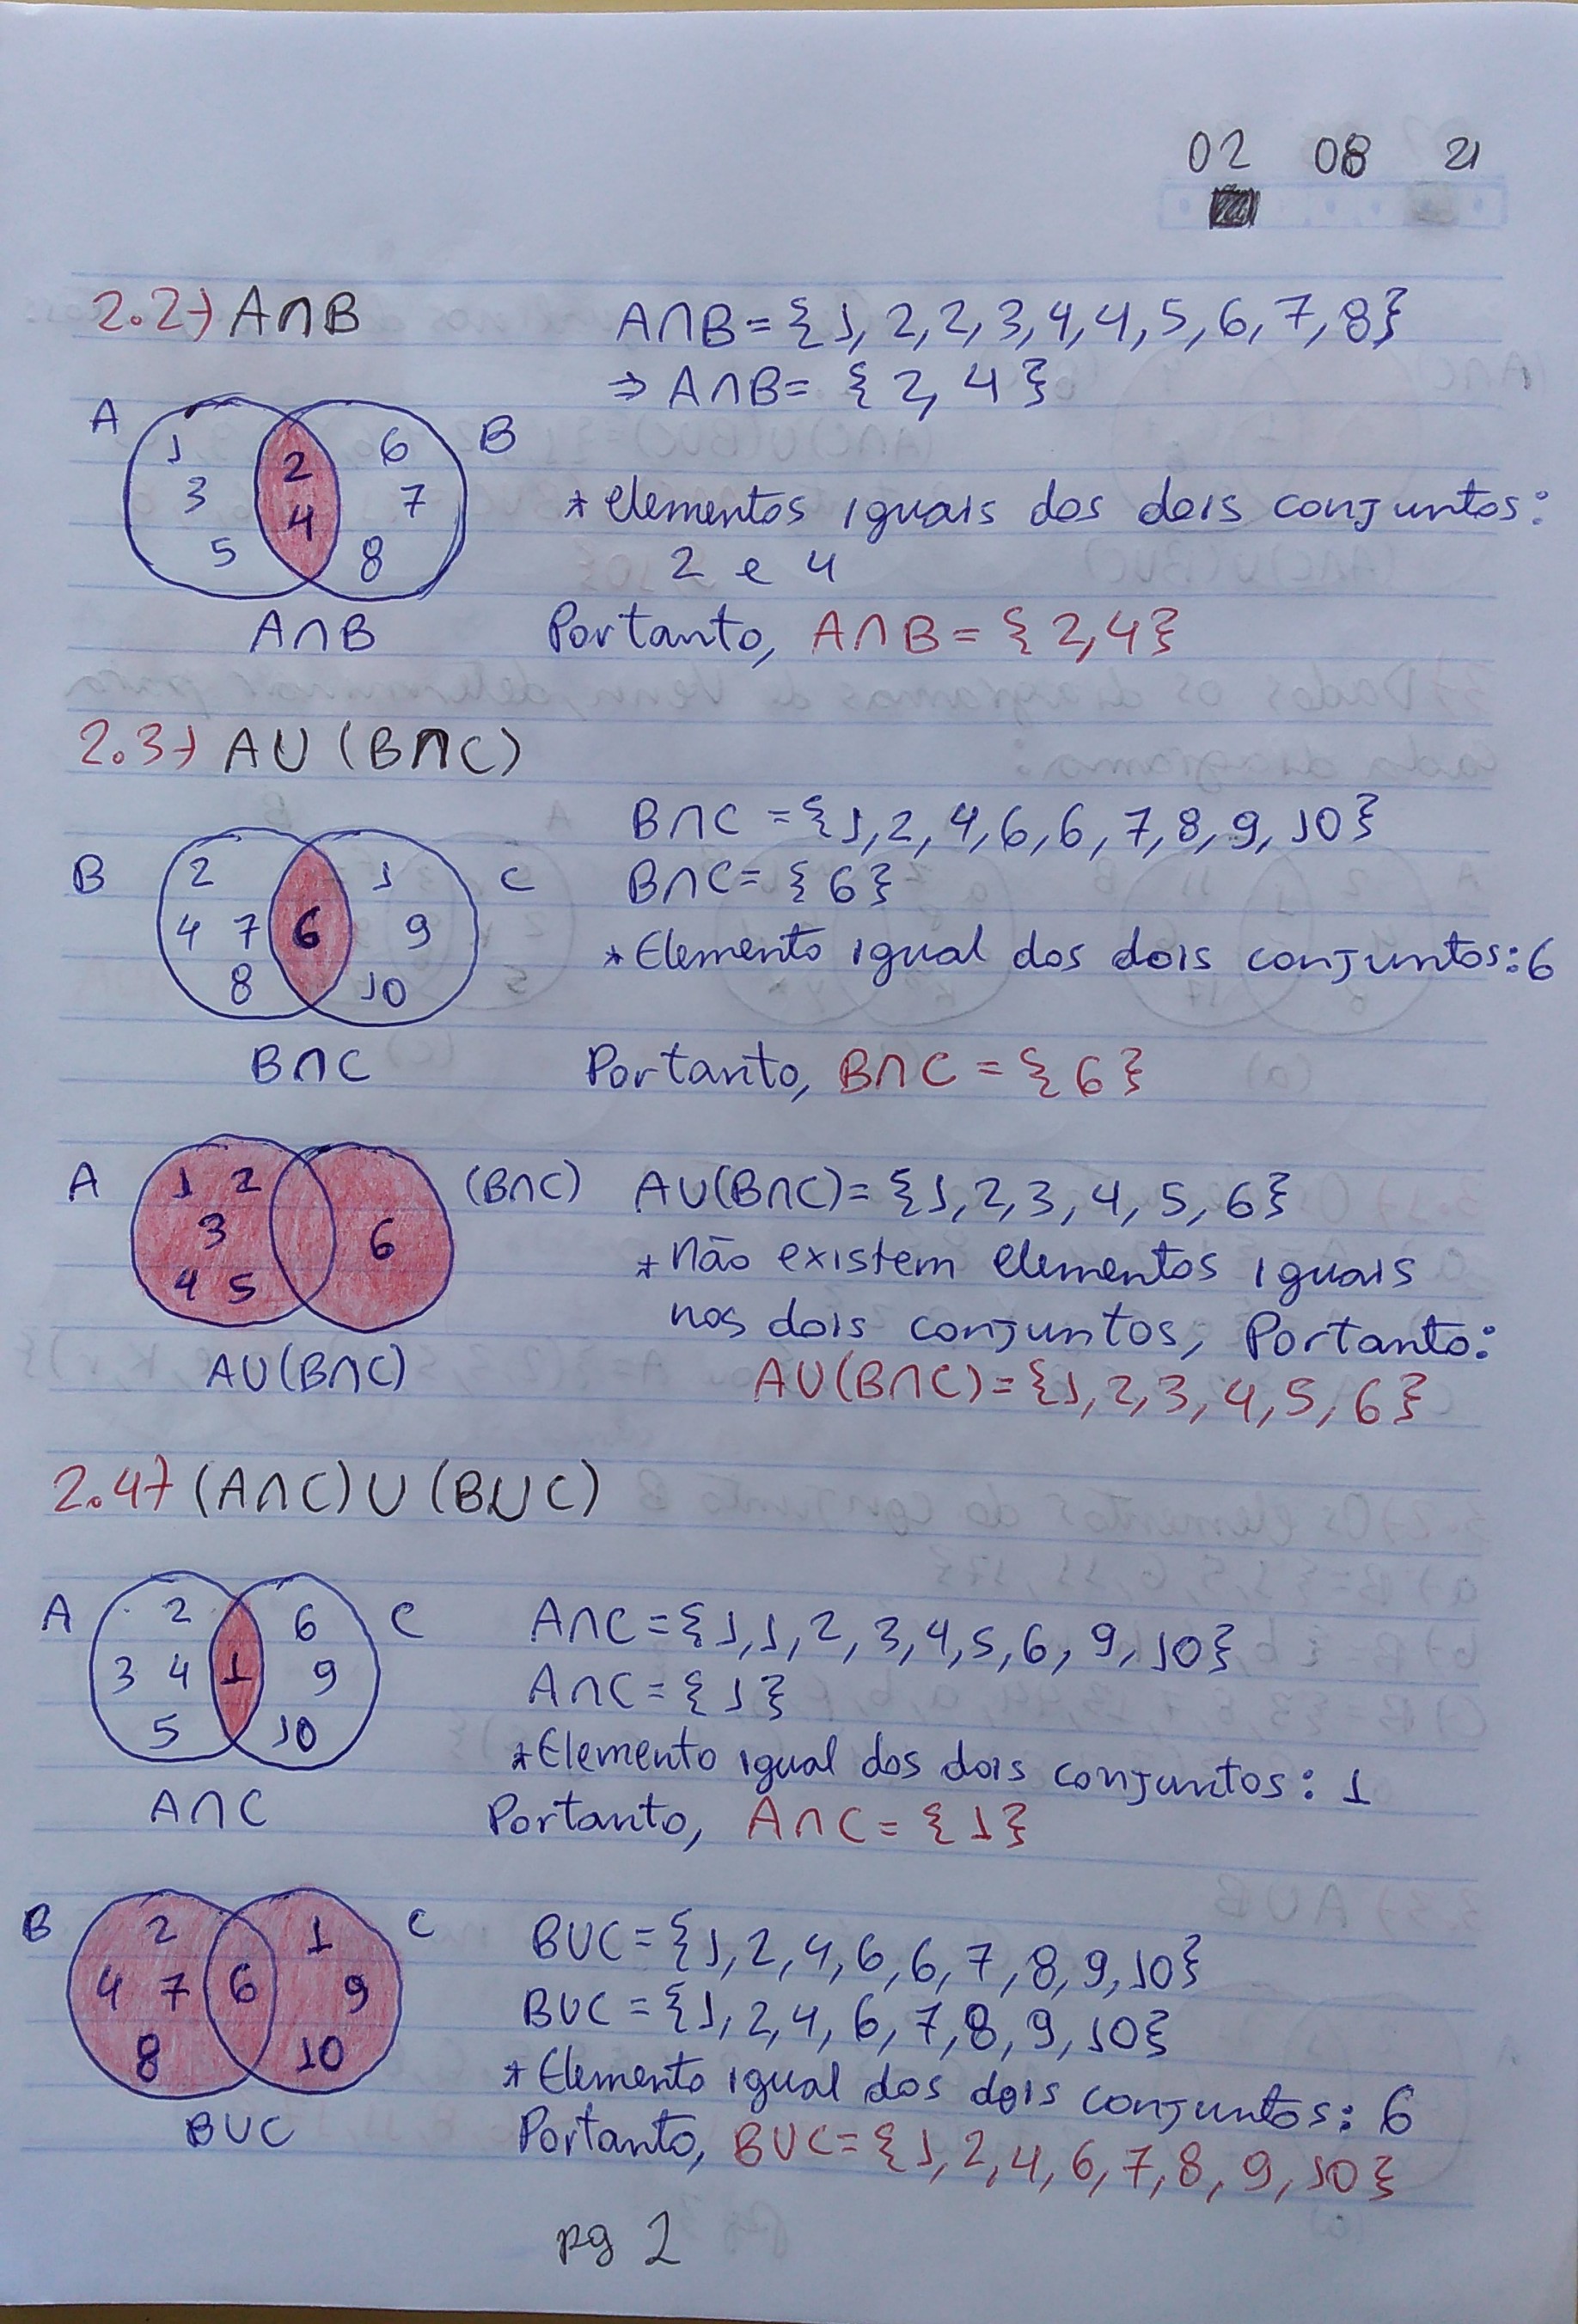 02 08 21
2.2) A∩B
A∩B = {1, 2, 2, 3, 4, 4, 5, 6, 7, 8}
⇒ A∩B = {2, 4}
A
1
3
5
2
4
6
7
8
B
A∩B
* elementos iguais dos dois conjuntos:
2 e 4
Portanto, A∩B = {2, 4}
2.3) AU (B∩C)
B∩C = {1, 2, 4, 6, 6, 7, 8, 9, 10}
B∩C = {6}
B
2
4 7
8
6
1
9
10
C
B∩C
* Elemento igual dos dois conjuntos: 6
Portanto, B∩C = {6}
A
1 2
3
4 5
6
(B∩C)
AU(B∩C)
AU(B∩C) = {1, 2, 3, 4, 5, 6}
* não existem elementos iguais
nos dois conjuntos, Portanto:
AU(B∩C) = {1, 2, 3, 4, 5, 6}
2.4) (A∩C) U (BUC)
A
2
3 4
5
1
6
9
10
C
A∩C
A∩C = {1, 1, 2, 3, 4, 5, 6, 9, 10}
A∩C = {1}
* Elemento igual dos dois conjuntos: 1
Portanto, A∩C = {1}
B
2
4 7
8
6
1
9
10
C
BUC
BUC = {1, 2, 4, 6, 6, 7, 8, 9, 10}
BUC = {1, 2, 4, 6, 7, 8, 9, 10}
* Elemento igual dos dois conjuntos: 6
Portanto, BUC = {1, 2, 4, 6, 7, 8, 9, 10}
pg 2